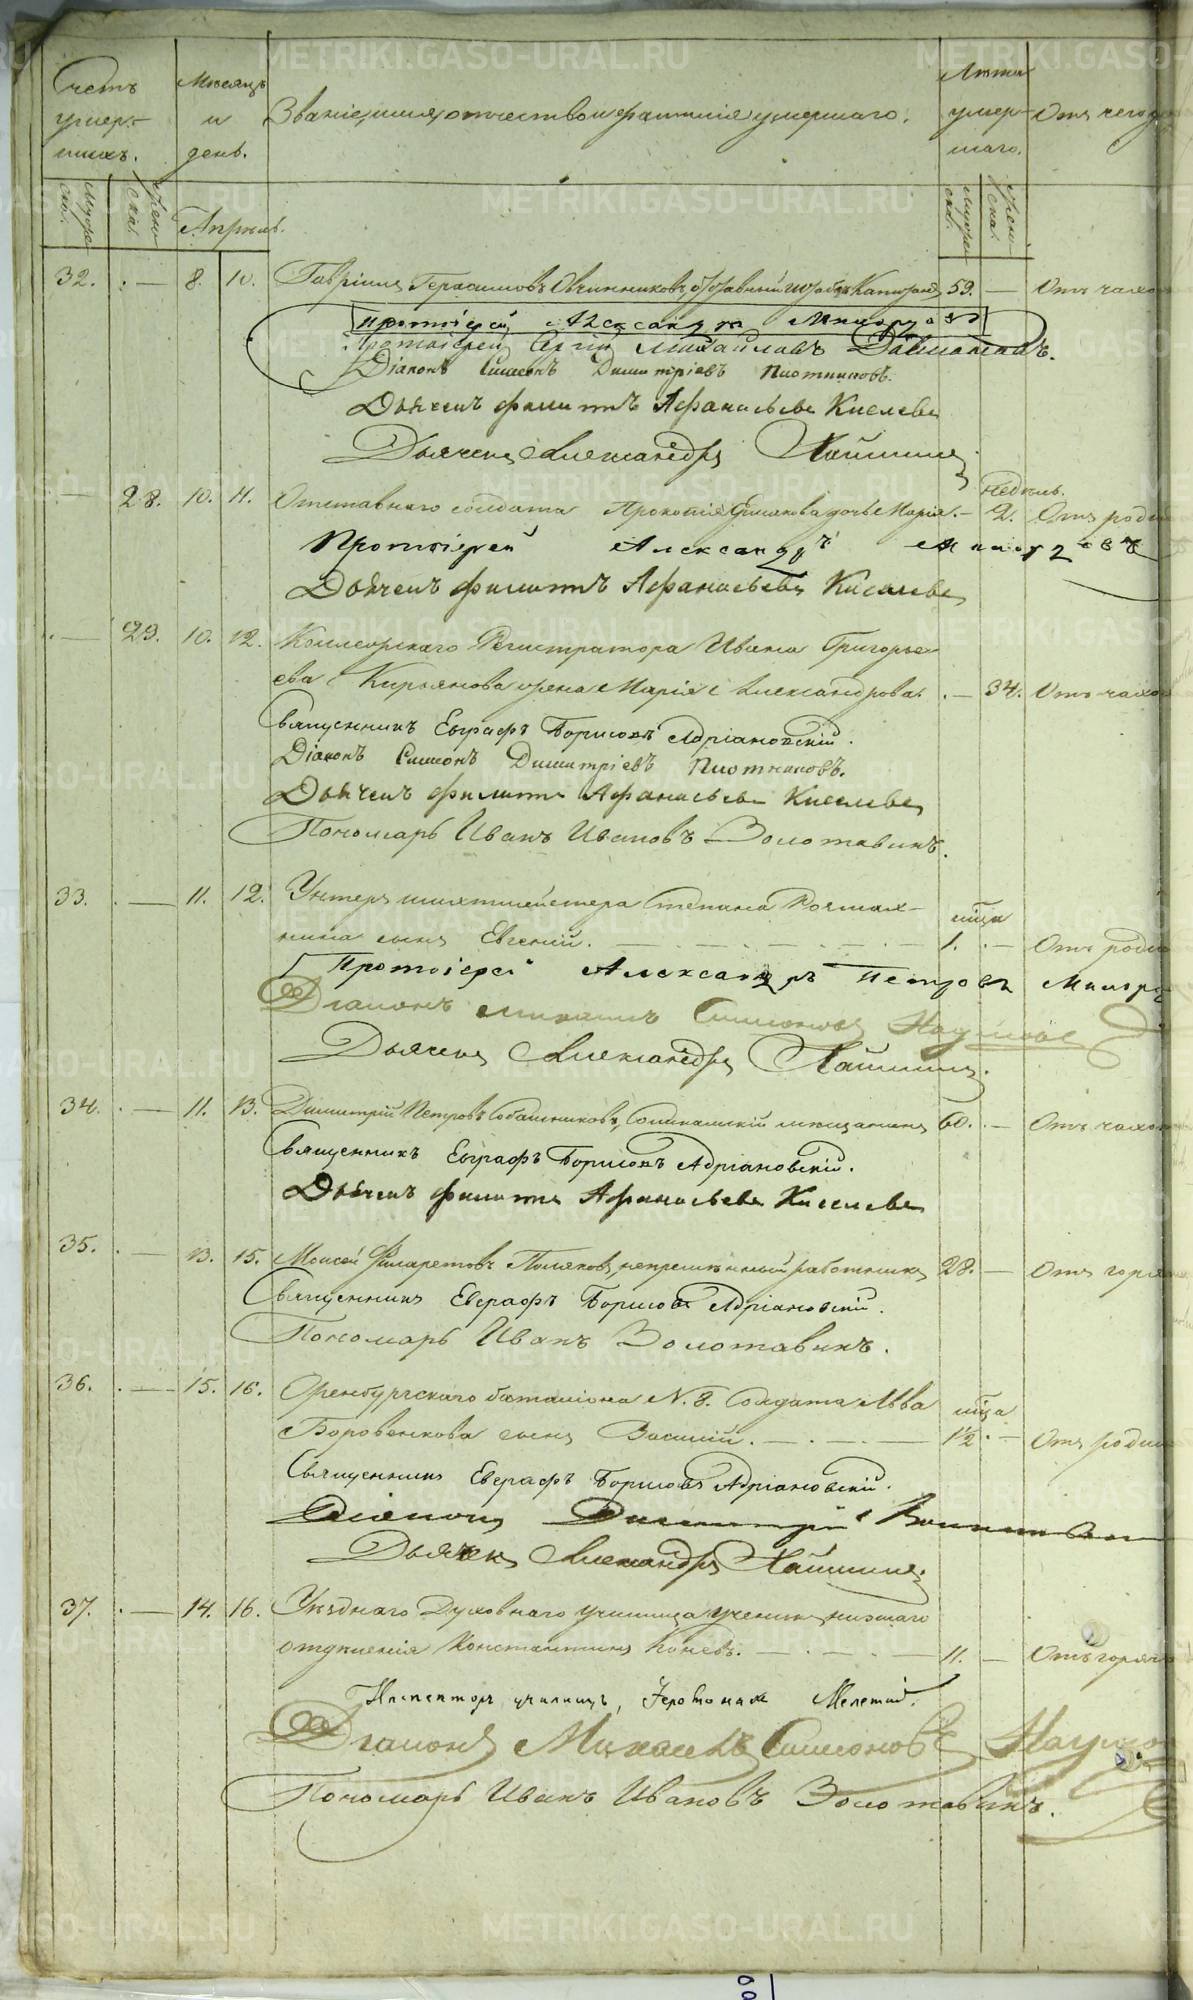 METRIKI.GASO-URAL.RU
Счетъ умер-шихъ.
Мѣсяцъ и день.
Званіе, имя, отчество и фамилія умершаго.
Лѣта умер-шаго.
Отъ чего
Мужеска.
Женска.
Апрѣль.
Мужеска.
Женска.
32. — 8. 10. Гавріилъ Герасимовъ Овчинниковъ, отставный штабсъ Капитанъ 59. — Отъ чахо
Протоіерей Александръ
Протоіерей Сергій Михайловъ
Діаконъ Симеонъ Димитріевъ Плотниковъ.
Дьячекъ Филиппъ Афанасьевъ Киселевъ
Дьячекъ Александръ
— 28. 10. 11. Отставнаго солдата Прокопія Ермакова дочь Марія. — недѣль. 2. Отъ роди
Протоіерей Александръ
Дьячекъ Филиппъ Афанасьевъ Киселевъ
— 29. 10. 12. Коллежскаго Регистратора Ивана Григорье-
ева Кирьянова жена Марія Александрова. — 34. Отъ чахо
Священникъ Евграфъ Борисовъ Адріановскій.
Діаконъ Симеонъ Димитріевъ Плотниковъ.
Дьячекъ Филиппъ Афанасьевъ Киселевъ
Пономарь Иванъ Ивановъ Золотавинъ.
33. — 11. 12. Унтеръ шихтмейстера Степана
сынъ Евгеній. — мѣца 1. — Отъ роди
Протоіерей Александръ Петровъ
Діаконъ Михаилъ Симоновъ Наумовъ
Дьячекъ Александръ
34. — 11. 13. Димитрій Петровъ Собашниковъ, Соликамскій мѣщанинъ 60. — Отъ чахо
Священникъ Евграфъ Борисовъ Адріановскій.
Дьячекъ Филиппъ Афанасьевъ Киселевъ
35. — 13. 15. Моисей Филаретовъ Поляковъ, непремѣнный работникъ 28. — Отъ горя
Священникъ Евграфъ Борисовъ Адріановскій.
Пономарь Иванъ Золотавинъ.
36. — 15. 16. Оренбургскаго баталіона N. 8. Солдата Льва
Боровенкова сынъ Василій. — мѣца 1/2 — Отъ роди
Священникъ Евграфъ Борисовъ Адріановскій.
Діаконъ Димитрій
Дьячекъ Александръ
37. — 14. 16. Уѣзднаго Духовнаго училища ученикъ низшаго
отдѣленія Константинъ Коневъ. — 11. — Отъ горяч
Инспекторъ училищъ, Іеромонахъ Мелетій.
Діаконъ Михаилъ Симоновъ
Пономарь Иванъ Ивановъ Золотавинъ.